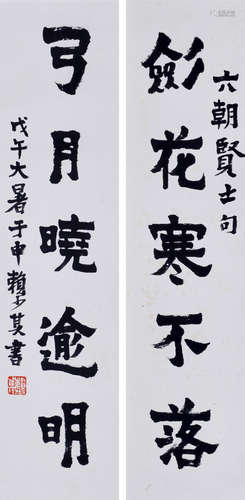 六朝賢士句
劍花寒不落
弓月曉逾明
戊午大暑于申賴少其書